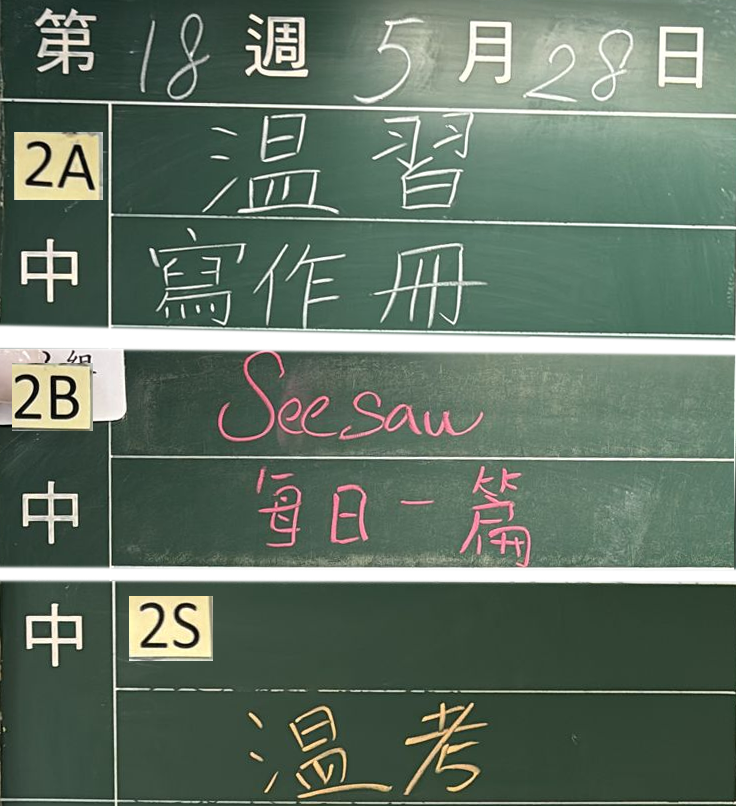 第 18 週 5 月 28 日
2A 温習
中 寫作冊
2B Seesaw
中 每日一篇
中 2S
温考